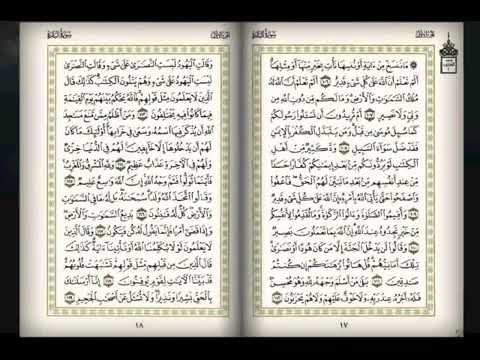 الجزء الأول
سورة البقرة
۞ مَا نَنسَخْ مِنْ ءَايَةٍ أَوْ نُنسِهَا نَأْتِ بِخَيْرٍ مِّنْهَآ أَوْ مِثْلِهَآ
أَلَمْ تَعْلَمْ أَنَّ ٱللَّهَ عَلَىٰ كُلِّ شَىْءٍ قَدِيرٌ ١٠٦ أَلَمْ تَعْلَمْ أَنَّ ٱللَّهَ لَهُۥ
مُلْكُ ٱلسَّمَٰوَٰتِ وَٱلْأَرْضِ وَمَا لَكُم مِّن دُونِ ٱللَّهِ مِن
وَلِىٍّ وَلَا نَصِيرٍ ١٠٧ أَمْ تُرِيدُونَ أَن تَسْـَٔلُوا۟ رَسُولَكُمْ
كَمَا سُئِلَ مُوسَىٰ مِن قَبْلُ وَمَن يَتَبَدَّلِ ٱلْكُفْرَ بِٱلْإِيمَٰنِ
فَقَدْ ضَلَّ سَوَآءَ ٱلسَّبِيلِ ١٠٨ وَدَّ كَثِيرٌ مِّنْ أَهْلِ
ٱلْكِتَٰبِ لَوْ يَرُدُّونَكُم مِّنۢ بَعْدِ إِيمَٰنِكُمْ كُفَّارًا حَسَدًا
مِّنْ عِندِ أَنفُسِهِم مِّنۢ بَعْدِ مَا تَبَيَّنَ لَهُمُ ٱلْحَقُّ فَٱعْفُوا۟
وَٱصْفَحُوا۟ حَتَّىٰ يَأْتِىَ ٱللَّهُ بِأَمْرِهِۦٓ إِنَّ ٱللَّهَ عَلَىٰ كُلِّ شَىْءٍ قَدِيرٌ ١٠٩
وَأَقِيمُوا۟ ٱلصَّلَوٰةَ وَءَاتُوا۟ ٱلزَّكَوٰةَ وَمَا تُقَدِّمُوا۟ لِأَنفُسِكُم
مِّنْ خَيْرٍ تَجِدُوهُ عِندَ ٱللَّهِ إِنَّ ٱللَّهَ بِمَا تَعْمَلُونَ بَصِيرٌ
١١٠ وَقَالُوا۟ لَن يَدْخُلَ ٱلْجَنَّةَ إِلَّا مَن كَانَ هُودًا أَوْ نَصَٰرَىٰ
تِلْكَ أَمَانِيُّهُمْ قُلْ هَاتُوا۟ بُرْهَٰنَكُمْ إِن كُنتُمْ
صَٰدِقِينَ ١١١ بَلَىٰ مَنْ أَسْلَمَ وَجْهَهُۥ لِلَّهِ وَهُوَ مُحْسِنٌ
فَلَهُۥٓ أَجْرُهُۥ عِندَ رَبِّهِۦ وَلَا خَوْفٌ عَلَيْهِمْ وَلَا هُمْ يَحْزَنُونَ ١١٢
١٧
الجزء الأول
سورة البقرة
وَقَالَتِ ٱلْيَهُودُ لَيْسَتِ ٱلنَّصَٰرَىٰ عَلَىٰ شَىْءٍ وَقَالَتِ ٱلنَّصَٰرَىٰ
لَيْسَتِ ٱلْيَهُودُ عَلَىٰ شَىْءٍ وَهُمْ يَتْلُونَ ٱلْكِتَٰبَ كَذَٰلِكَ قَالَ
ٱلَّذِينَ لَا يَعْلَمُونَ مِثْلَ قَوْلِهِمْ فَٱللَّهُ يَحْكُمُ بَيْنَهُمْ يَوْمَ ٱلْقِيَٰمَةِ
فِيمَا كَانُوا۟ فِيهِ يَخْتَلِفُونَ ١١٣ وَمَنْ أَظْلَمُ مِمَّن مَّنَعَ مَسَٰجِدَ
ٱللَّهِ أَن يُذْكَرَ فِيهَا ٱسْمُهُۥ وَسَعَىٰ فِى خَرَابِهَآ أُو۟لَٰٓئِكَ مَا كَانَ
لَهُمْ أَن يَدْخُلُوهَآ إِلَّا خَآئِفِينَ لَهُمْ فِى ٱلدُّنْيَا خِزْىٌ
وَلَهُمْ فِى ٱلْـَٔاخِرَةِ عَذَابٌ عَظِيمٌ ١١٤ وَلِلَّهِ ٱلْمَشْرِقُ وَٱلْمَغْرِبُ
فَأَيْنَمَا تُوَلُّوا۟ فَثَمَّ وَجْهُ ٱللَّهِ إِنَّ ٱللَّهَ وَٰسِعٌ عَلِيمٌ ١١٥
وَقَالُوا۟ ٱتَّخَذَ ٱللَّهُ وَلَدًا سُبْحَٰنَهُۥ بَل لَّهُۥ مَا فِى ٱلسَّمَٰوَٰتِ
وَٱلْأَرْضِ كُلٌّ لَّهُۥ قَٰنِتُونَ ١١٦ بَدِيعُ ٱلسَّمَٰوَٰتِ وَٱلْأَرْضِ
وَإِذَا قَضَىٰٓ أَمْرًا فَإِنَّمَا يَقُولُ لَهُۥ كُن فَيَكُونُ ١١٧ وَقَالَ ٱلَّذِينَ
لَا يَعْلَمُونَ لَوْلَا يُكَلِّمُنَا ٱللَّهُ أَوْ تَأْتِينَآ ءَايَةٌ كَذَٰلِكَ
قَالَ ٱلَّذِينَ مِن قَبْلِهِم مِّثْلَ قَوْلِهِمْ تَشَٰبَهَتْ قُلُوبُهُمْ
قَدْ بَيَّنَّا ٱلْـَٔايَٰتِ لِقَوْمٍ يُوقِنُونَ ١١٨ إِنَّآ أَرْسَلْنَٰكَ
بِٱلْحَقِّ بَشِيرًا وَنَذِيرًا وَلَا تُسْـَٔلُ عَنْ أَصْحَٰبِ ٱلْجَحِيمِ ١١٩
١٨